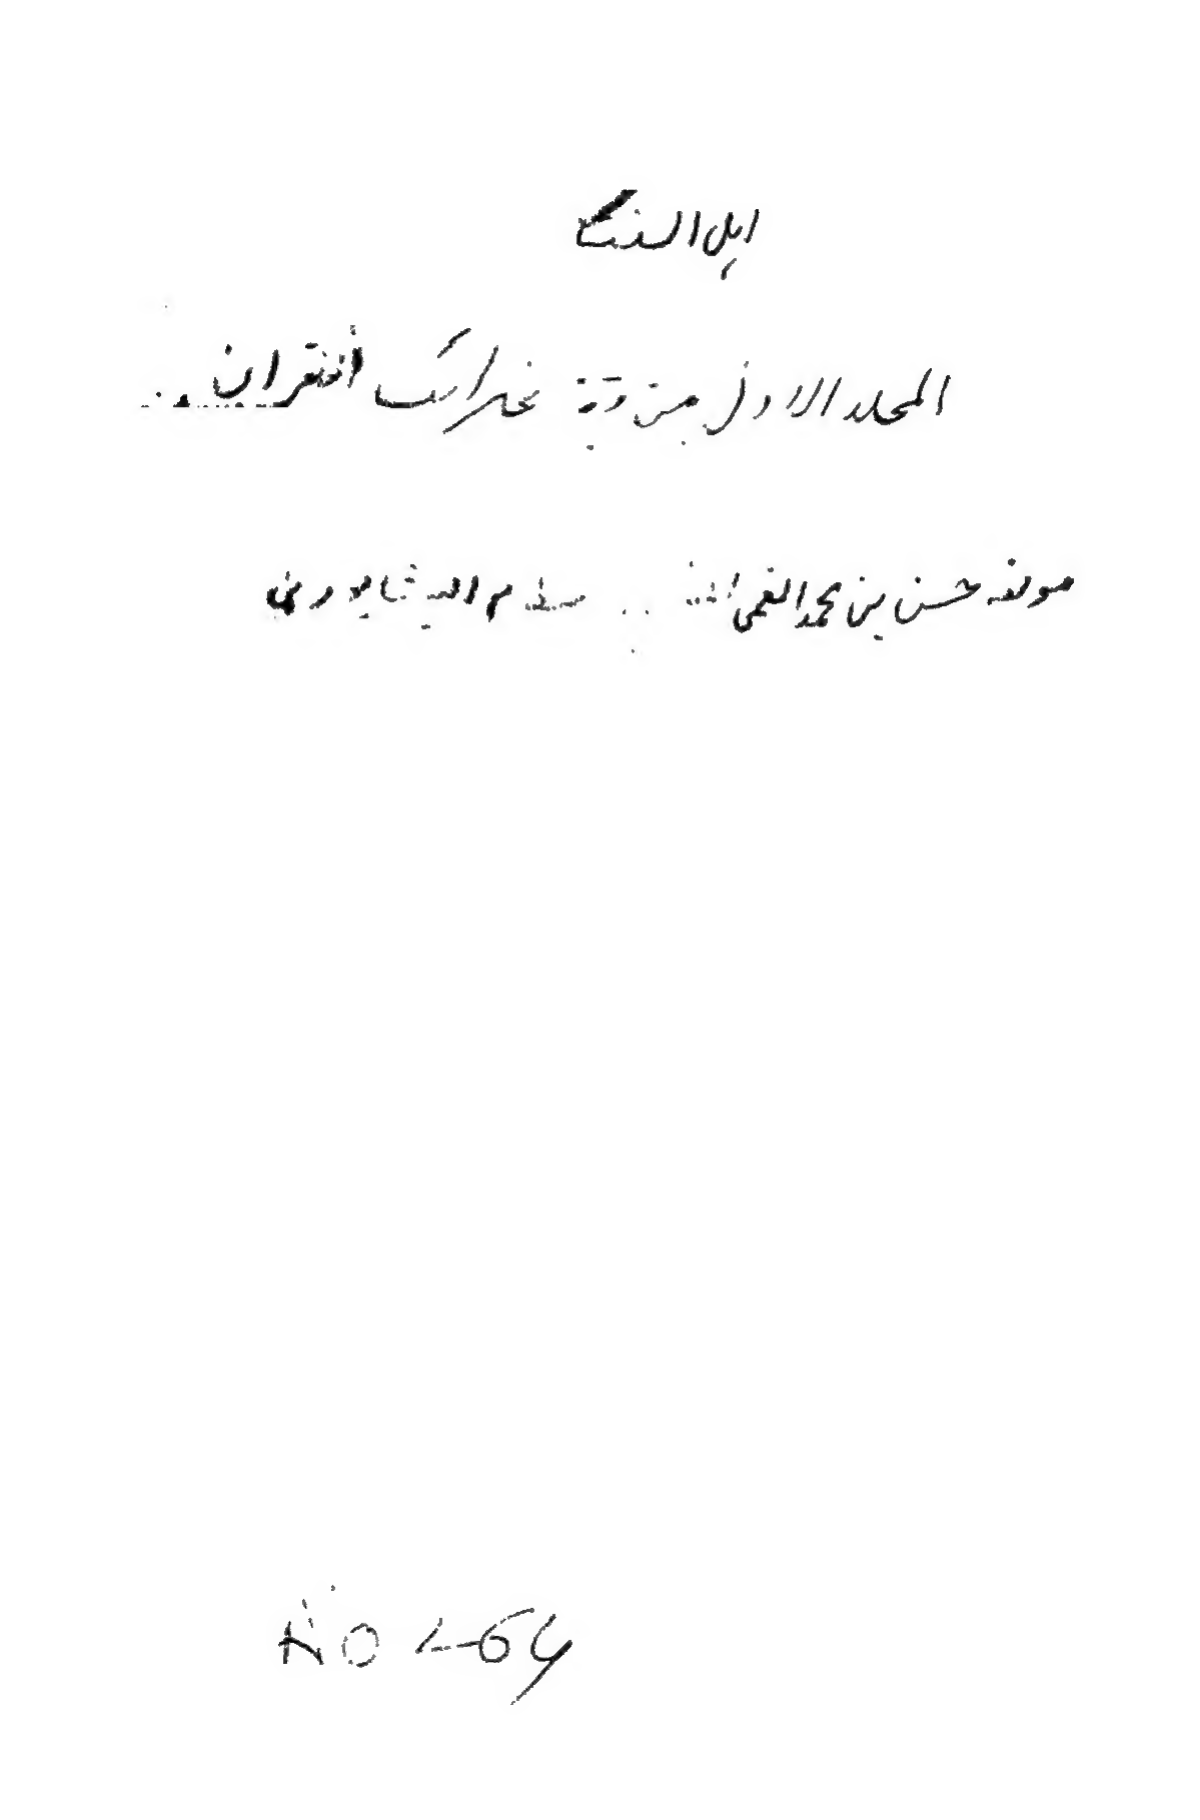 اہل السنة
المجلد الاول من غرائب القران
مولفه حسن بن محمد القمی نظام الدین نیشاپوری
No 264